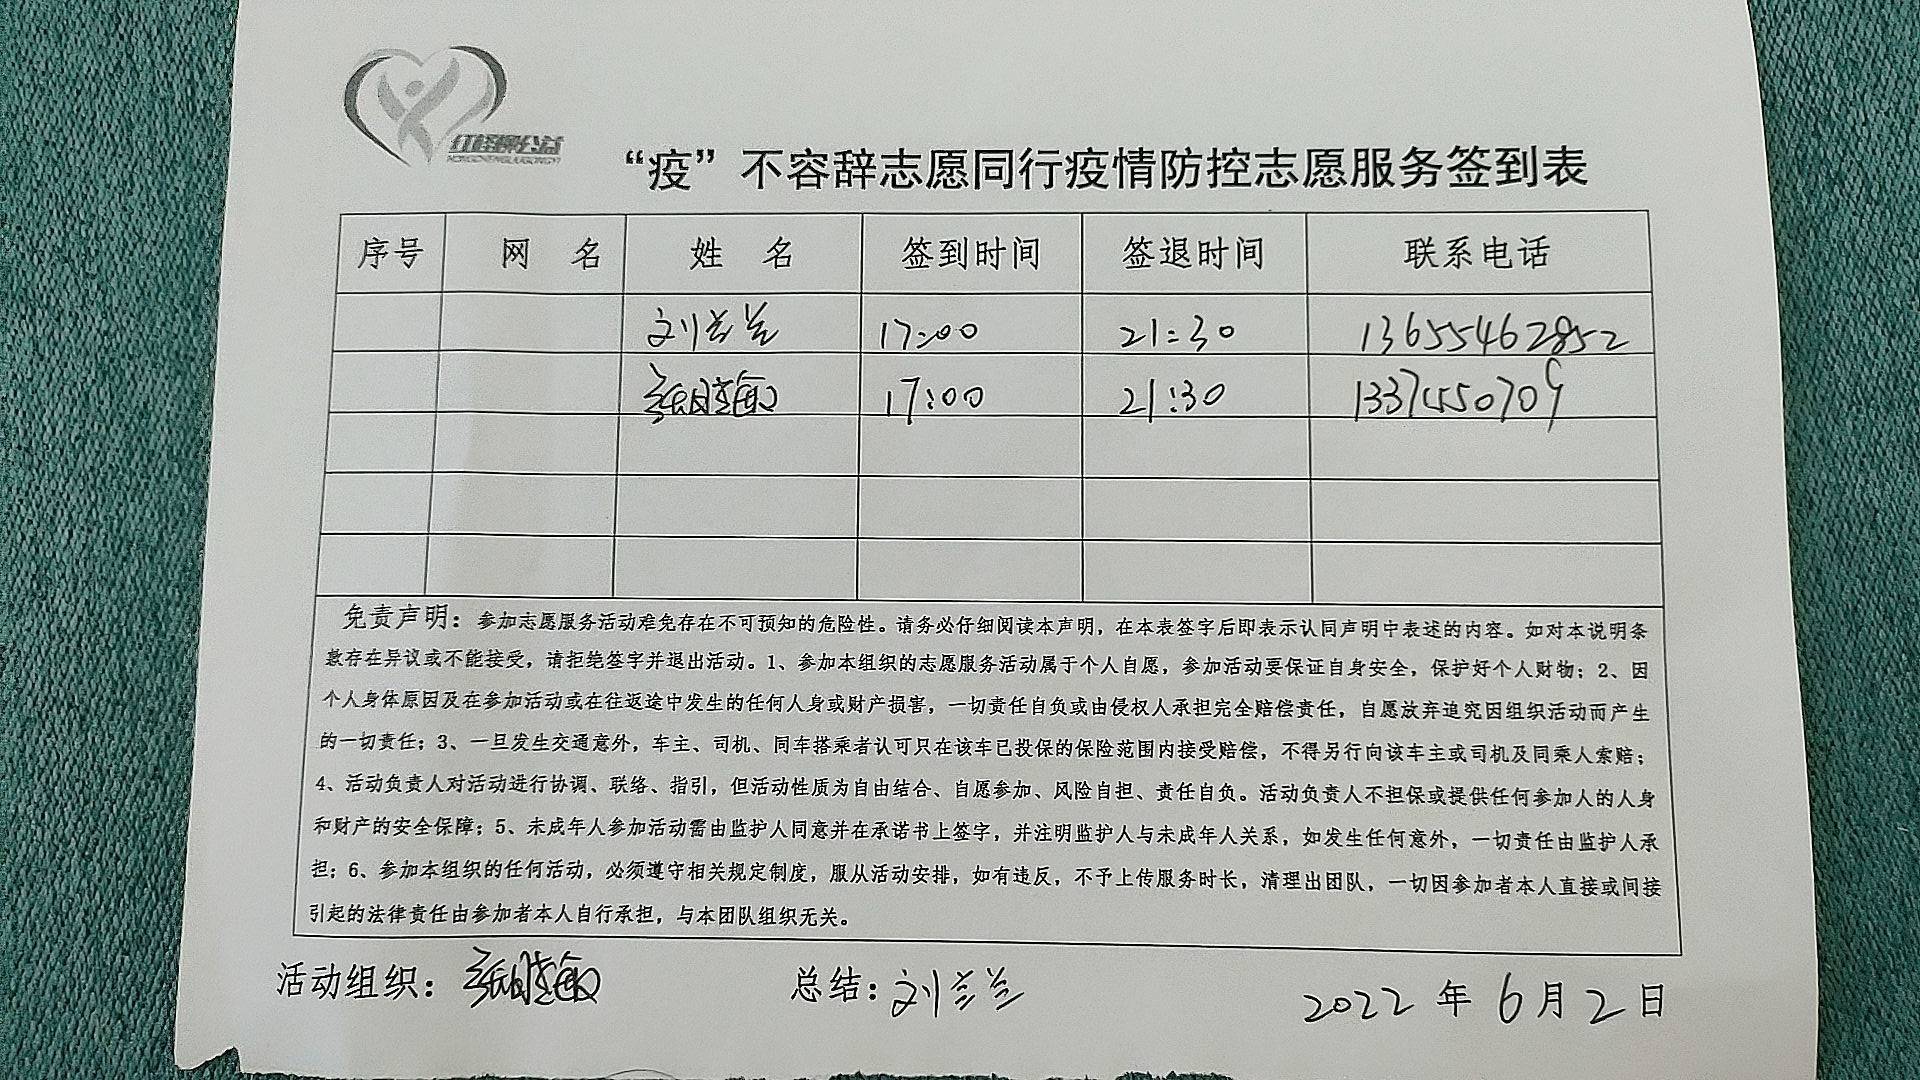 红铬牌公益
“疫”不容辞志愿同行疫情防控志愿服务签到表
序号 网 名 姓 名 签到时间 签退时间 联系电话
刘兰兰 17:00 21:30 13655462852
17:00 21:30 13374550709
免责声明：参加志愿服务活动难免存在不可预知的危险性。请务必仔细阅读本声明，在本表签字后即表示认同声明中表述的内容。如对本说明条
款存在异议或不能接受，请拒绝签字并退出活动。1、参加本组织的志愿服务活动属于个人自愿，参加活动要保证自身安全，保护好个人财物；2、因
个人身体原因及在参加活动或在往返途中发生的任何人身或财产损害，一切责任自负或由侵权人承担完全赔偿责任，自愿放弃追究因组织活动而产生
的一切责任；3、一旦发生交通意外，车主、司机、同车搭乘者认可只在该车已投保的保险范围内接受赔偿，不得另行向该车主或司机及同乘人索赔；
4、活动负责人对活动进行协调、联络、指引，但活动性质为自由结合、自愿参加、风险自担、责任自负。活动负责人不担保或提供任何参加人的人身
和财产的安全保障；5、未成年人参加活动需由监护人同意并在承诺书上签字，并注明监护人与未成年人关系，如发生任何意外，一切责任由监护人承
担；6、参加本组织的任何活动，必须遵守相关规定制度，服从活动安排，如有违反，不予上传服务时长，清理出团队，一切因参加者本人直接或间接
引起的法律责任由参加者本人自行承担，与本团队组织无关。
活动组织： 总结：刘兰兰 2022年6月2日